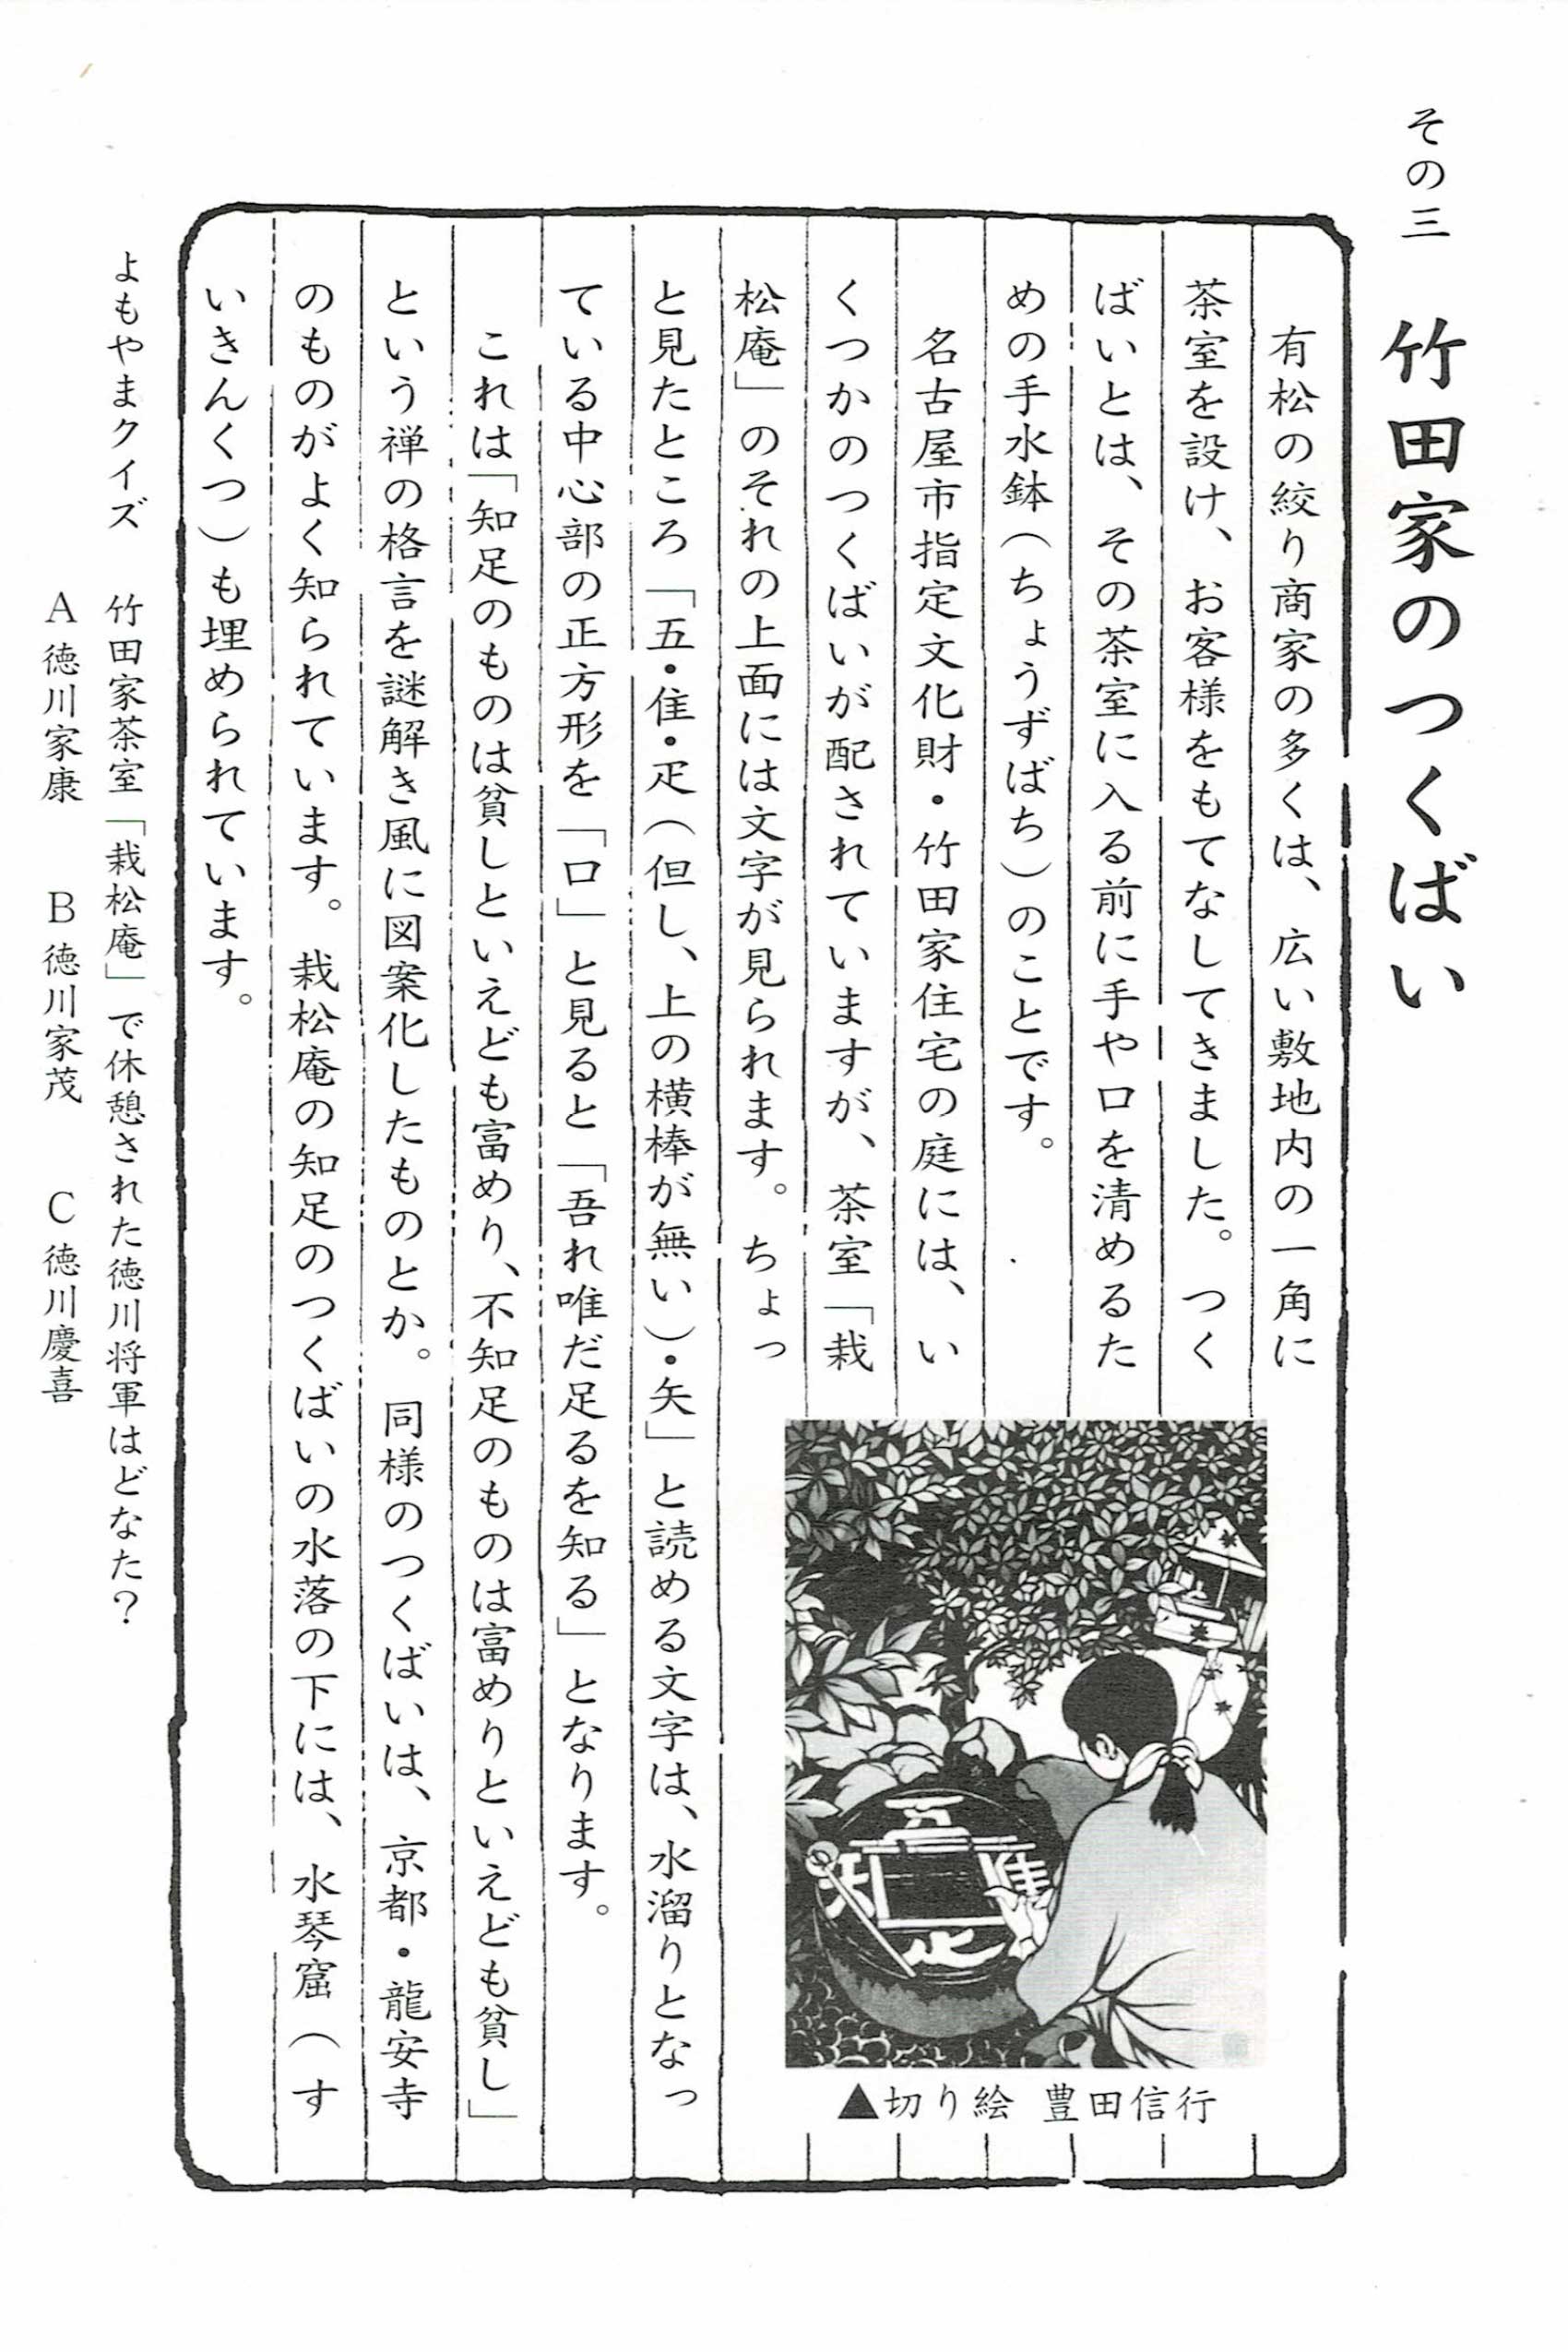 その三 竹田家のつくばい
有松の絞り商家の多くは、広い敷地内の一角に
茶室を設け、お客様をもてなしてきました。つく
ばいとは、その茶室に入る前に手や口を清めるた
めの手水鉢（ちょうずばち）のことです。
名古屋市指定文化財・竹田家住宅の庭には、い
くつかのつくばいが配されていますが、茶室「栽
松庵」のそれの上面には文字が見られます。ちょっ
と見たところ「五・隹・疋（但し、上の横棒が無い）・矢」と読める文字は、水溜りとなっ
ている中心部の正方形を「口」と見ると「吾れ唯だ足るを知る」となります。
これは「知足のものは貧しといえども富めり、不知足のものは富めりといえども貧し」
という禅の格言を謎解き風に図案化したものとか。同様のつくばいは、京都・龍安寺
のものがよく知られています。栽松庵の知足のつくばいの水落の下には、水琴窟（す
いきんくつ）も埋められています。
▲切り絵 豊田信行
よもやまクイズ 竹田家茶室「栽松庵」で休憩された徳川将軍はどなた？
A 徳川家康 B 徳川家茂 C 徳川慶喜